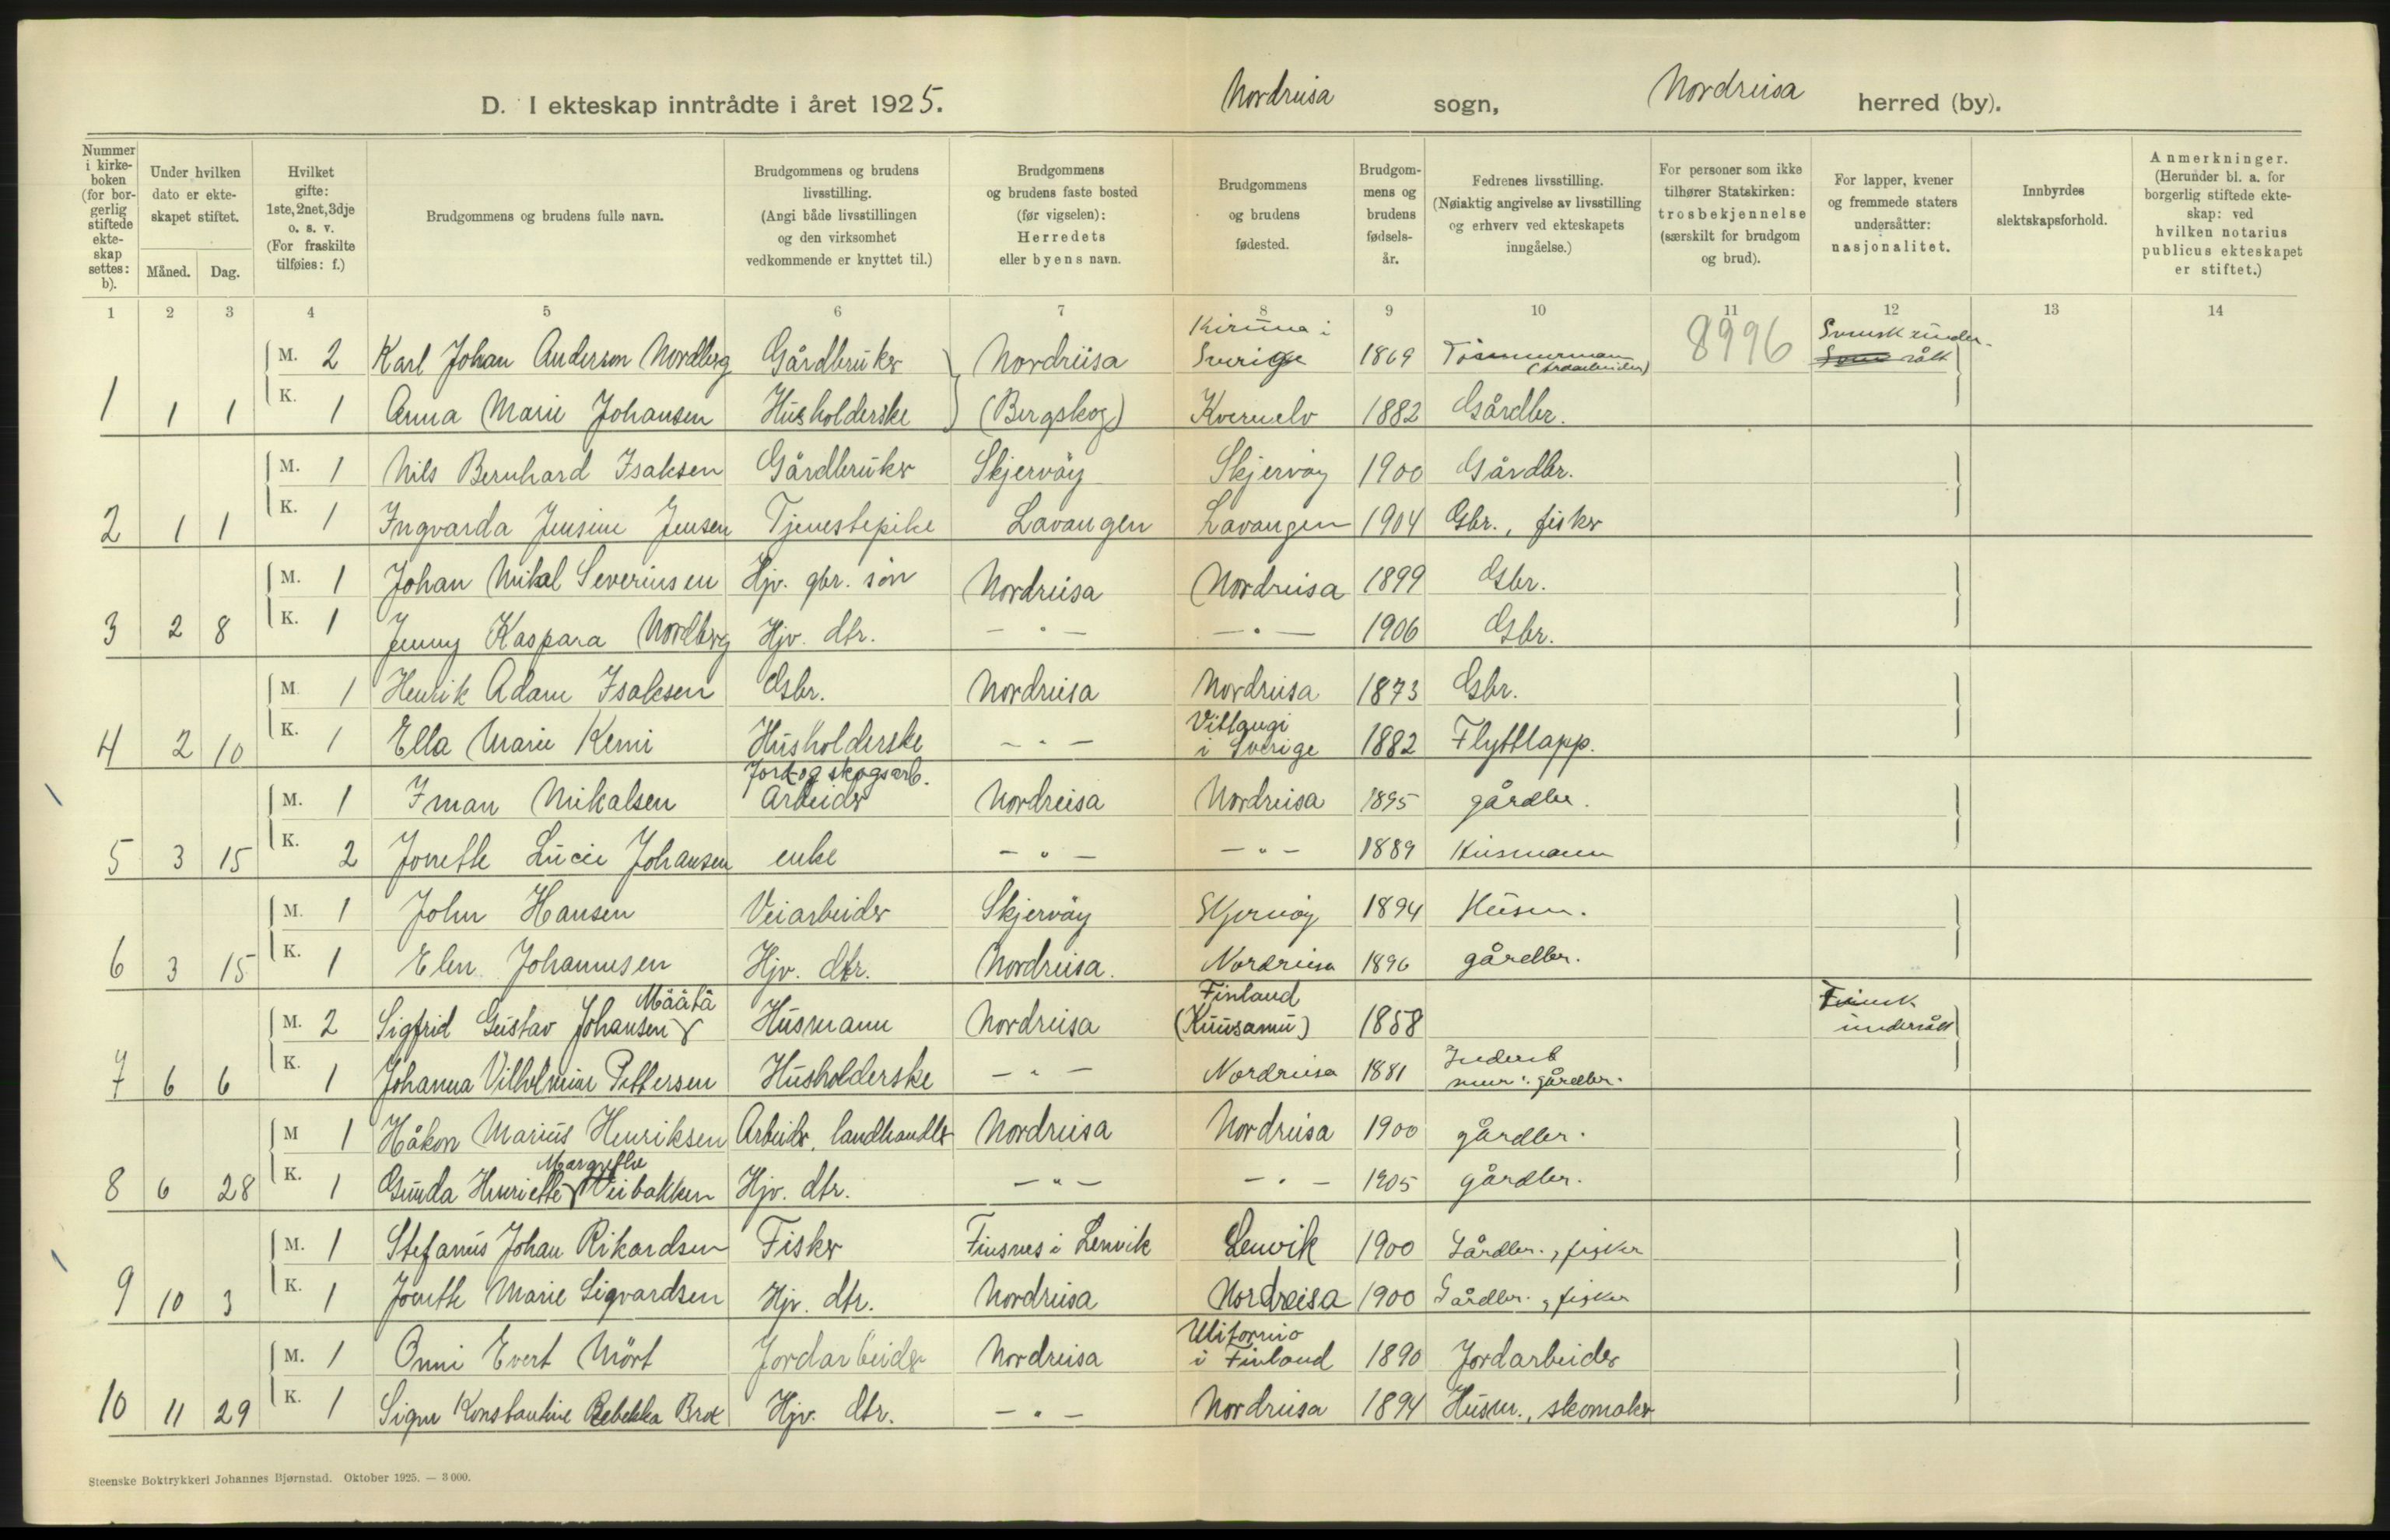 D. I ekteskap inntrådte i året 1925. Nordreisa sogn, Nordreisa herred (by).
Nummer i kirke-boken (for bor-gerlig stiftede ekte-skap settes: b).
Under hvilken dato er ekte-skapet stiftet.
Måned. Dag.
Hvilket gifte: 1ste, 2net, 3dje o. s. v. (For fraskilte tilføies: f.)
Brudgommens og brudens fulle navn.
Brudgommens og brudens livsstilling. (Angi både livsstillingen og den virksomhet vedkommende er knyttet til.)
Brudgommens og brudens faste bosted (før vigselen): Herredets eller byens navn.
Brudgommens og brudens fødested.
Brudgom-mens og brudens fødsels-år.
Fedrenes livsstilling. (Nøiaktig angivelse av livsstilling og erhverv ved ekteskapets inngåelse.)
For personer som ikke tilhører Statskirken: trosbekjennelse (særskilt for brudgom og brud).
For lapper, kvener og fremmede staters undersåtter: nasjonalitet.
Innbyrdes slektskapsforhold.
Anmerkninger. (Herunder bl. a. for borgerlig stiftede ekte-skap: ved hvilken notarius publicus ekteskapet er stiftet.)
1 2 3 4 5 6 7 8 9 10 11 12 13 14
M. 2 Karl Johan Anderson Nordberg Gårdbruker Nordreisa Kiruna i Sverige 1869 Tømmermann 8996 Svensk under-sått
1 1 1 K. 1 Anna Marie Johansen Husholderske (Bergskog) Kvenelv 1882 Gårdbr.
M. 1 Nils Bernhard Isaksen Gårdbruker Skjervøy Skjervøy 1900 Gårdbr.
2 1 1 K. 1 Ingvarda Jensine Jensen Tjenestepike Lavangen Lavangen 1904 Gbr., fisker
M. 1 Johan Mikal Severinsen Hjv. gbr. søn Nordreisa Nordreisa 1899 Gbr.
3 2 8 K. 1 Jenny Kaspara Nordberg Hjv. dtr. — " — — " — 1906 Gbr.
M. 1 Henrik Adam Isaksen Gbr. Nordreisa Nordreisa 1873 Gbr.
4 2 10 K. 1 Ella Marie Kemi Husholderske — " — Vittangi i Sverige 1882 Flyttlapp.
M. 1 Iman Mikalsen Jord og skogsarb. Arbeider Nordreisa Nordreisa 1895 gårdbr.
5 3 15 K. 2 Jonette Lucie Johansen enke — " — — " — 1889 Husmann
M. 1 John Hansen Veiarbeider Skjervøy Skjervøy 1894 Husm.
6 3 15 K. 1 Elen Johannesen Hjv. dtr. Nordreisa. Nordreisa 1896 gårdbr.
M. 2 Sigfrid Gustav Johansen Määtä Husmann Nordreisa Finland (Kuusamu) 1858 Finsk undersått
7 6 6 K. 1 Johanna Vilhelmine Pettersen Husholderske — " — Nordreisa 1881 gårdbr.
M 1 Håkon Marius Henriksen Arbeider, landhandler Nordreisa Nordreisa 1900 gårdbr.
8 6 28 K. 1 Gunda Henriette Margrethe Veibakken Hjv. dtr. — " — — " — 1905 gårdbr.
M. 1 Stefanus Johan Rikardsen Fisker Finsnes i Lenvik Lenvik 1900 Gårdbr., fisker
9 10 3 K. 1 Jonette Marie Sigvardsen Hjv. dtr. Nordreisa Nordreisa 1900 Gårdbr., fisker
M. 1 Onni Evert Mört Jordarbeider Nordreisa Ulitornio i Finland 1890 Jordarbeider
10 11 29 K. 1 Signe Konstantine Rebekka Brox Hjv. dtr. — " — Nordreisa 1894 Husm., skomaker
Steenske Boktrykkeri Johannes Bjørnstad. Oktober 1925. — 3 000.